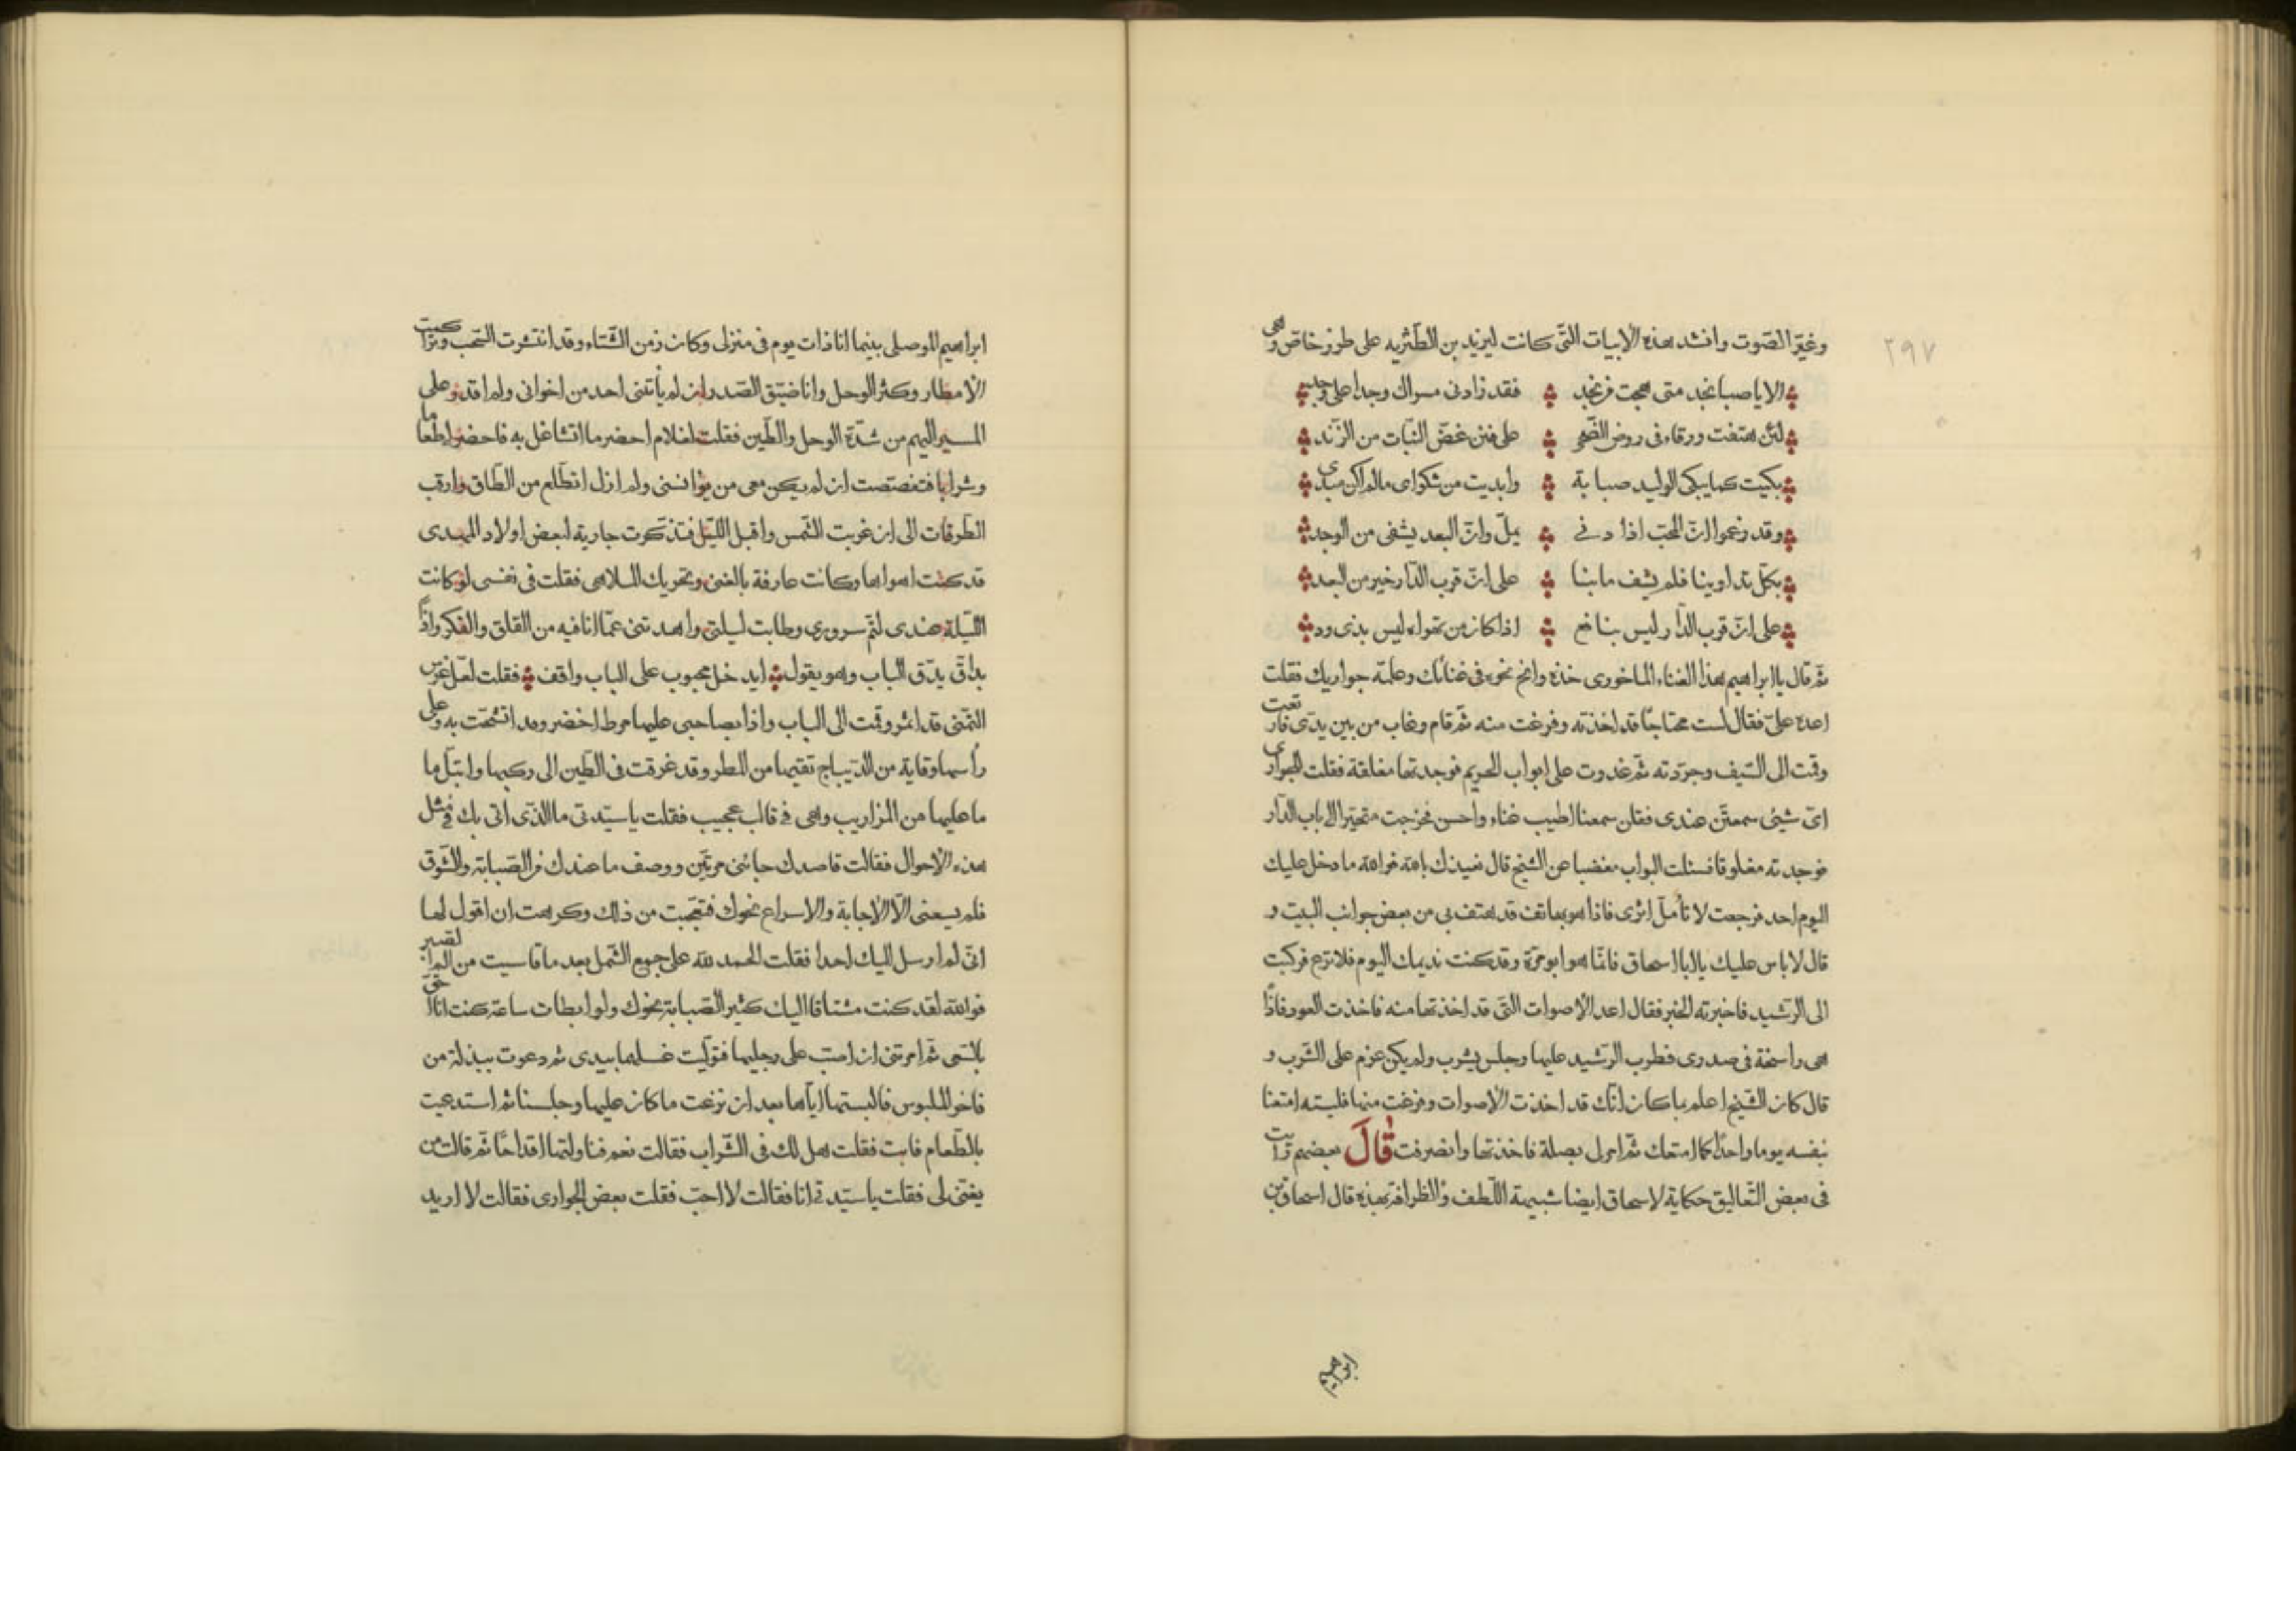 ٢٩٧
وغيّر الصّوت وانشد هذه الأبيات التّى كانت ليزيد بن الطّثريه على طرز خاصّ وهى
الا يا صبا نجد متى هجت من نجد فقد زادنى مسراك وجدا على وجد
لئن هتفت ورقاء فى رونق الضّحى على فنن غضّ النّبات من الرّند
بكيت كما يبكى الوليد صبابة وابديت من شكواى مالم اكن مبدى
وقد زعموا انّ المحبّ اذا دنى يملّ وانّ البعد يشفى من الوجد
بكلّ تداوينا فلم يشف ما بنا على انّ قرب الدّار خير من البعد
على انّ قرب الدّار ليس بنافع اذا كان من تهواه ليس بذى ود
ثمّ قال يا ابراهيم هذا الغناء الماخورى خذه وانح نحوه فى غنائك وعلّمه جواريك فقلت
اعده علىّ فقال لست محتاجًا قد اخذته وفرغت منه ثمّ قام وغاب من بين يدىّ فارتعت
وقمت الى السّيف وجرّدته ثمّ غدوت على ابواب الحريم فوجدتها مغلقة فقلت للجوارى
اىّ شيئ سمعتنّ عندى فقلن سمعنا اطيب غناء واحسن فخرجت متحيّرا الى باب الدّار
فوجدته مغلوقا فسئلت البواب مغضبا عن الشيخ قال نعيذك بالله فوالله ما دخل عليك
اليوم احد فرجعت لا تأمّل اثرى فاذا هو بهاتف قد هتف بى من بعض جوانب البيت و
قال لا باس عليك يا ابا اسحاق فانّما هو ابو مرّة وقد كنت نديمك اليوم فلا ترع فركبت
الى الرّشيد فاخبرته الخبر فقال اعد الأصوات التّى قد اخذتها منه فاخذت العود فاذًا
هى راسخة فى صدرى فطرب الرّشيد عليها وجلس يشرب ولم يكن عزم على الشّرب و
قال كان الشّيخ اعلم بما كان انّك قد اخذت الأصوات وفرغت منها فليته امتعنا
بنفسه يوما واحدًا كما امتعك ثمّ امر لى بصلة فاخذتها وانصرفت قَالَ بعضهم رايت
فى بعض التّعاليق حكاية لاسحاق ايضا شبيهة اللّطف والظرافة بهذه قال اسحاق بن
ابراهيم
ابراهيم الموصلى بينما انا ذات يوم فى منزلى وكان زمن الشّتاء وقد انتشرت السّحب وتراكمت
الأمطار وكثر الوحل وانا ضيّق الصّدر ان لم يأتنى احد من اخوانى ولم اقدر على
المسير اليهم من شدّة الوحل والطّين فقلت لغلام احضر ما اتشاغل به فاحضر طعاما
وشرابا فتغصّصت ان لم يكن معى من يؤانسنى ولم ازل اتطلّع من الطّاق وارقب
الطّرقات الى ان غربت الشّمس واقبل اللّيل فتذكّرت جارية لبعض اولاد المهدى
قد كنت اهواها وكانت عارفة بالغنى وتحريك الملاهى فقلت فى نفسى لو كانت
اللّيلة عندى لتمّ سرورى وطابت ليلتى واهدتنى عمّا انا فيه من القلق والفكر واذًا
بداقّ يدّق الباب وهو يقول ايدخل محبوب على الباب واقف فقلت لعلّ غرس
التّمنى قد اثمر وقمت الى الباب واذا بصاحبى عليها مرط اخضر وقد اتشّحت به وعلى
رأسها وقاية من الدّيباج تقيها من المطر وقد غرقت فى الطّين الى ركبها وابتلّ ما
ما عليها من المزاريب وهى فى قالب عجيب فقلت يا سيّدتى ما الذّى اتى بك فى مثل
هذه الأحوال فقالت قاصدك جائنى مرتّين ووصف ما عندك من الصّبابة والشّوق
فلم يسعنى الّا الأجابة والاسراع نحوك فتعجّبت من ذلك وكرهت ان اقول لها
انّى لم ارسل اليك احدا فقلت الحمد للّه على جميع الشّمل بعد ما قاسيت من الم الصبر
فواللّه لقد كنت مشتاقا اليك كثير الصّبابة نحوك ولو ابطات ساعة كنت انا احقّ
بالسّعى ثمّ امرتنى ان اصبّ على رجليها فتولّيت غسلها بيدى ثم دعوت ببذلة من
فاخر الملبوس فالبستها ايّاها بعد ان نزعت ما كان عليها وجلسنا ثم استدعيت
بالطّعام فابت فقلت هل لك فى الشّراب فقالت نعم فناولتها اقداحًا ثمّ قالت من
يغنّى لى فقلت يا سيّدتى انا فقالت لا احبّ فقلت بعض الجوارى فقالت لا اريد